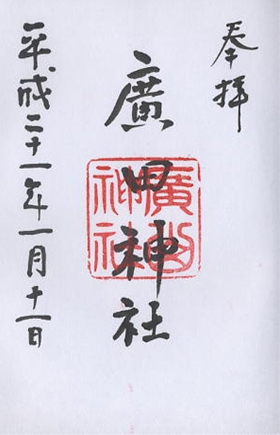 奉拝
廣田神社
廣田
神社
平成二十一年一月十一日